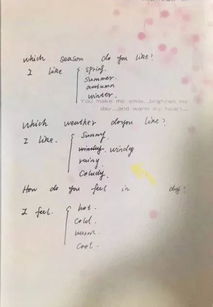 which season do you like?
I like spring
summer
autumn
winter.
You make me smile, brighten my
day...and warm my heart...
Which weather doyou like?
I like. Sunny
windey. windy
rainy
Coludy.
How do you feel in day?
I feel. hot.
cold.
warm.
cool.